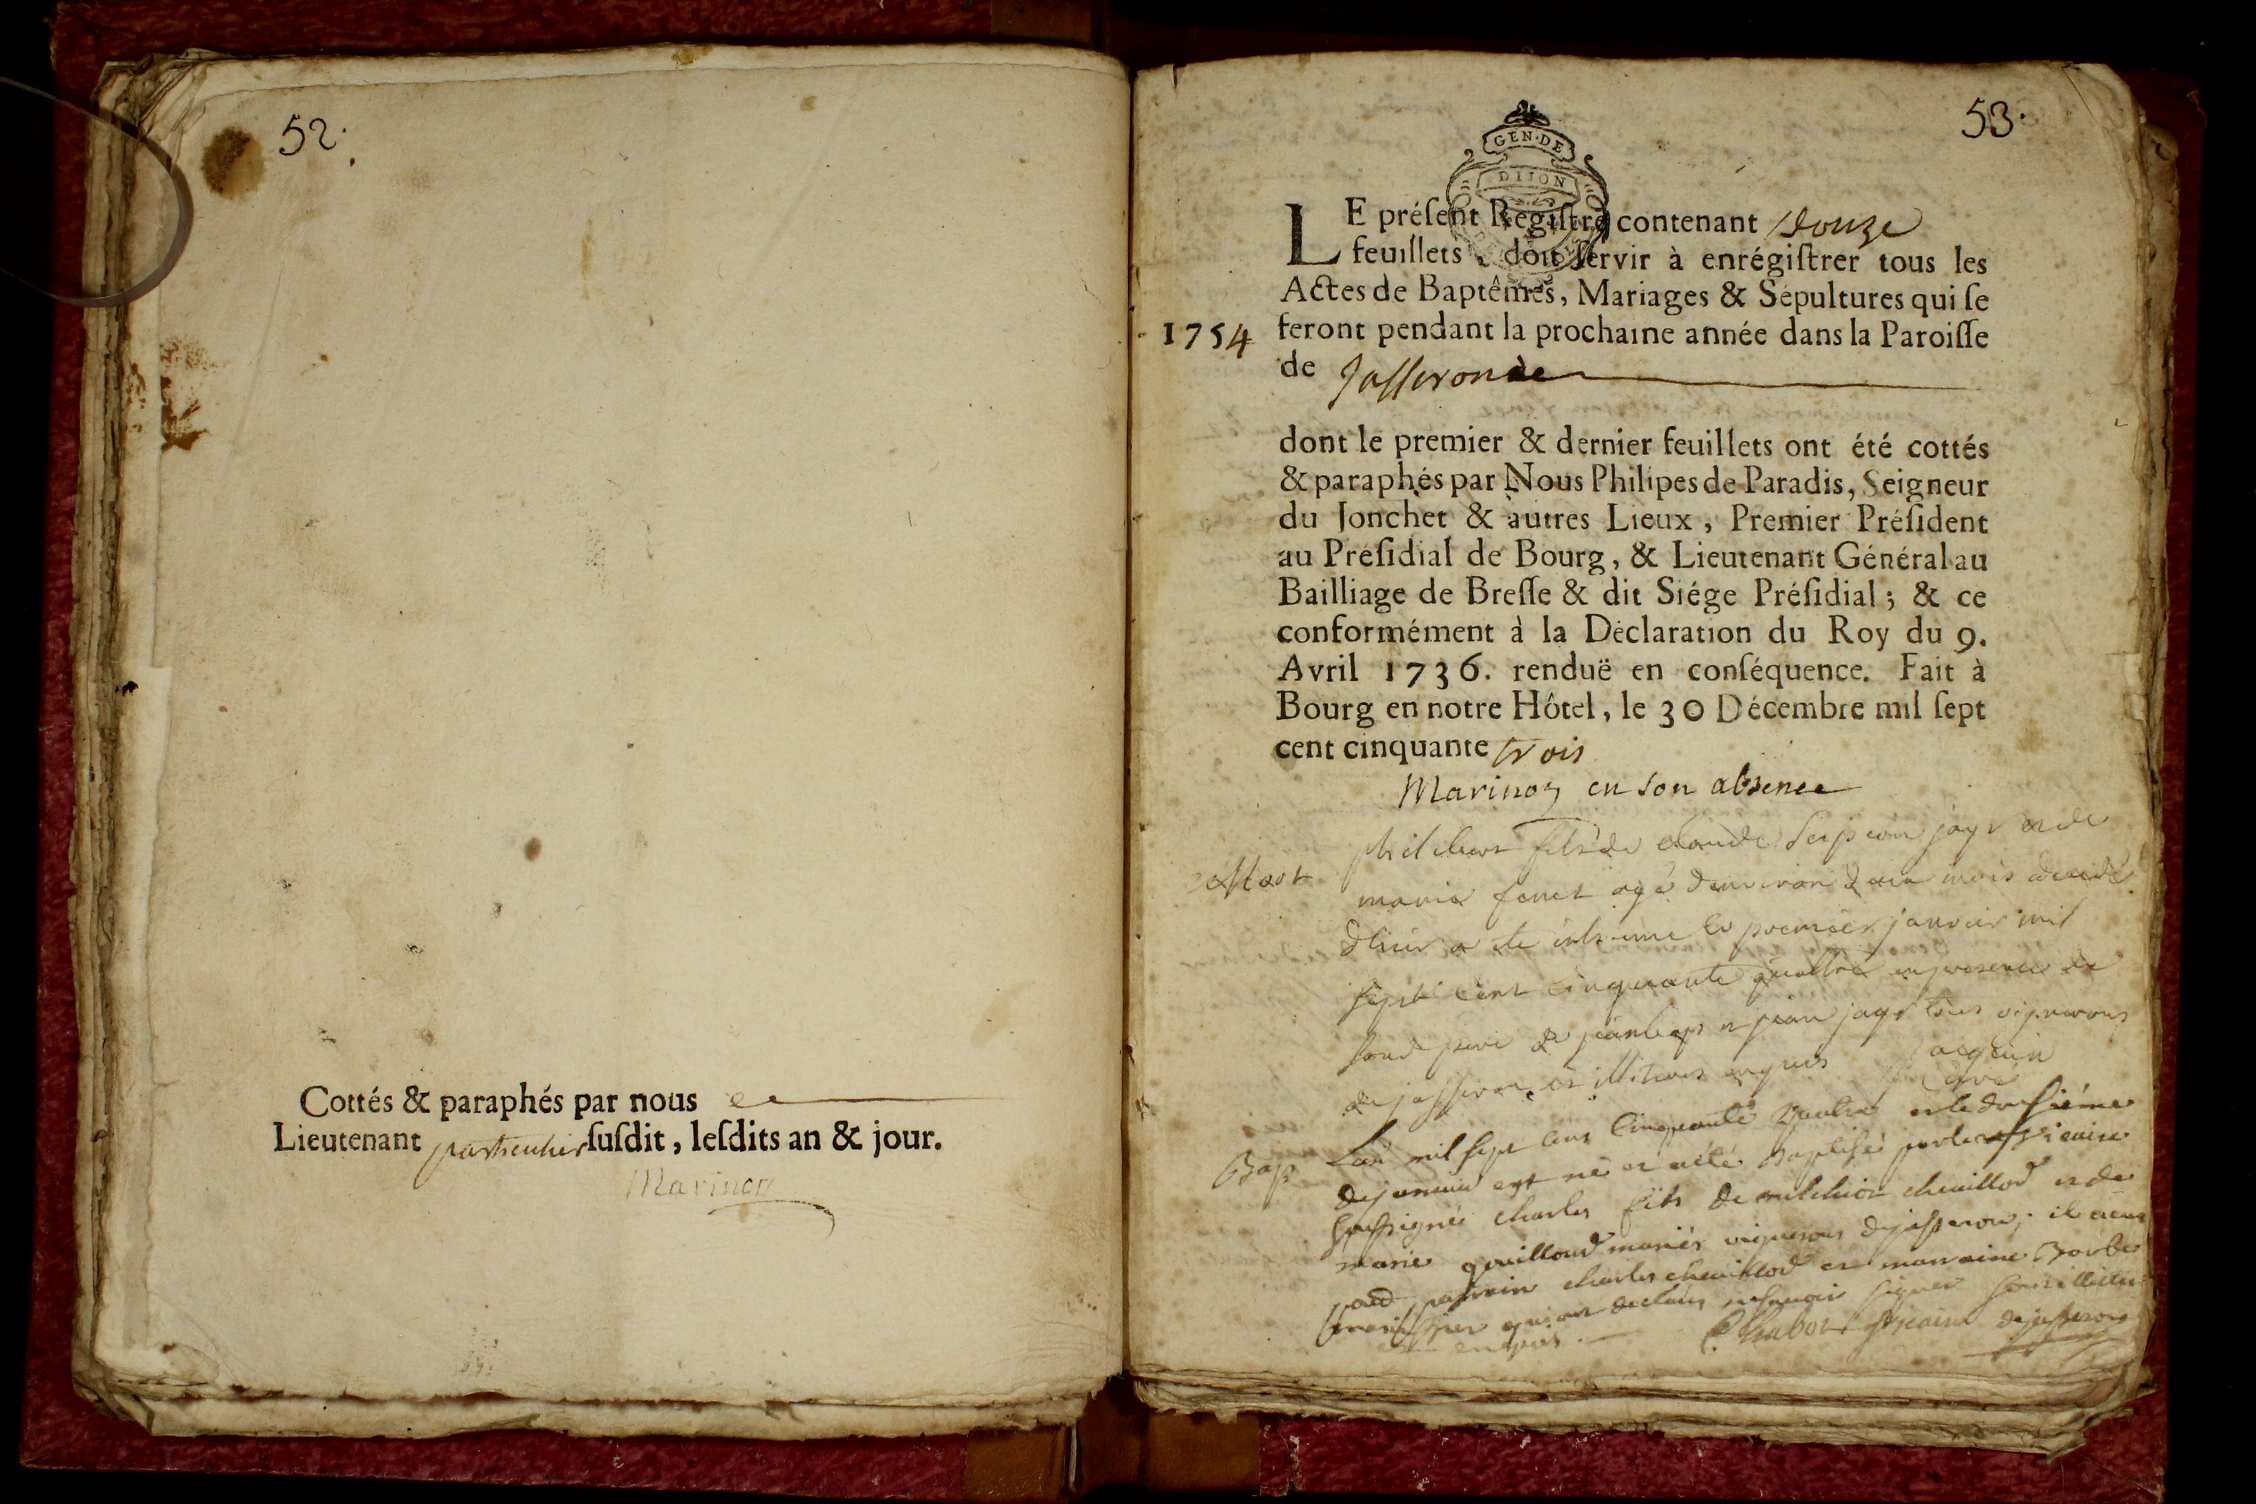 52.
Cottés & paraphés par nous
Lieutenant particulier ſuſdit, leſdits an & jour.
Marinon
53.
GEN·DE
DIJON
LE préſent Regiſtre contenant Douze
feuillets doit ſervir à enrégiſtrer tous les
Actes de Baptêmes, Mariages & Sépultures qui ſe
1754 feront pendant la prochaine année dans la Paroiſſe
de Jasseron
dont le premier & dernier feuillets ont été cottés
& paraphés par Nous Philipes de Paradis, Seigneur
du Jonchet & autres Lieux, Premier Préſident
au Préſidial de Bourg, & Lieutenant Général au
Bailliage de Breſſe & dit Siége Préſidial; & ce
conformément à la Déclaration du Roy du 9.
Avril 1736. renduë en conſéquence. Fait à
Bourg en notre Hôtel, le 30 Décembre mil ſept
cent cinquante trois
Marinon en son absence
Mort
philibert fils de claude jayr et de
marie agé d'environ mois décédé
d'hier a ete inhumé le premier janvier mil
sept cent cinquante quattre en presence de
son pere et jean jayr tous vignerons
de jasseron et illiteres enquis
curé
Bap
L'an mil sept cent cinquante quatre et le
de janvier est né et a été baptisé par le vicaire
soussigné charles fils de melchior chevillod et de
marie gouilloud mariés vignerons de jasseron, il a eu
pour parrain charles chevillod et marraine
qui ont declaré ne sçavoir signer
enquis. Chabot vicaire de jasseron